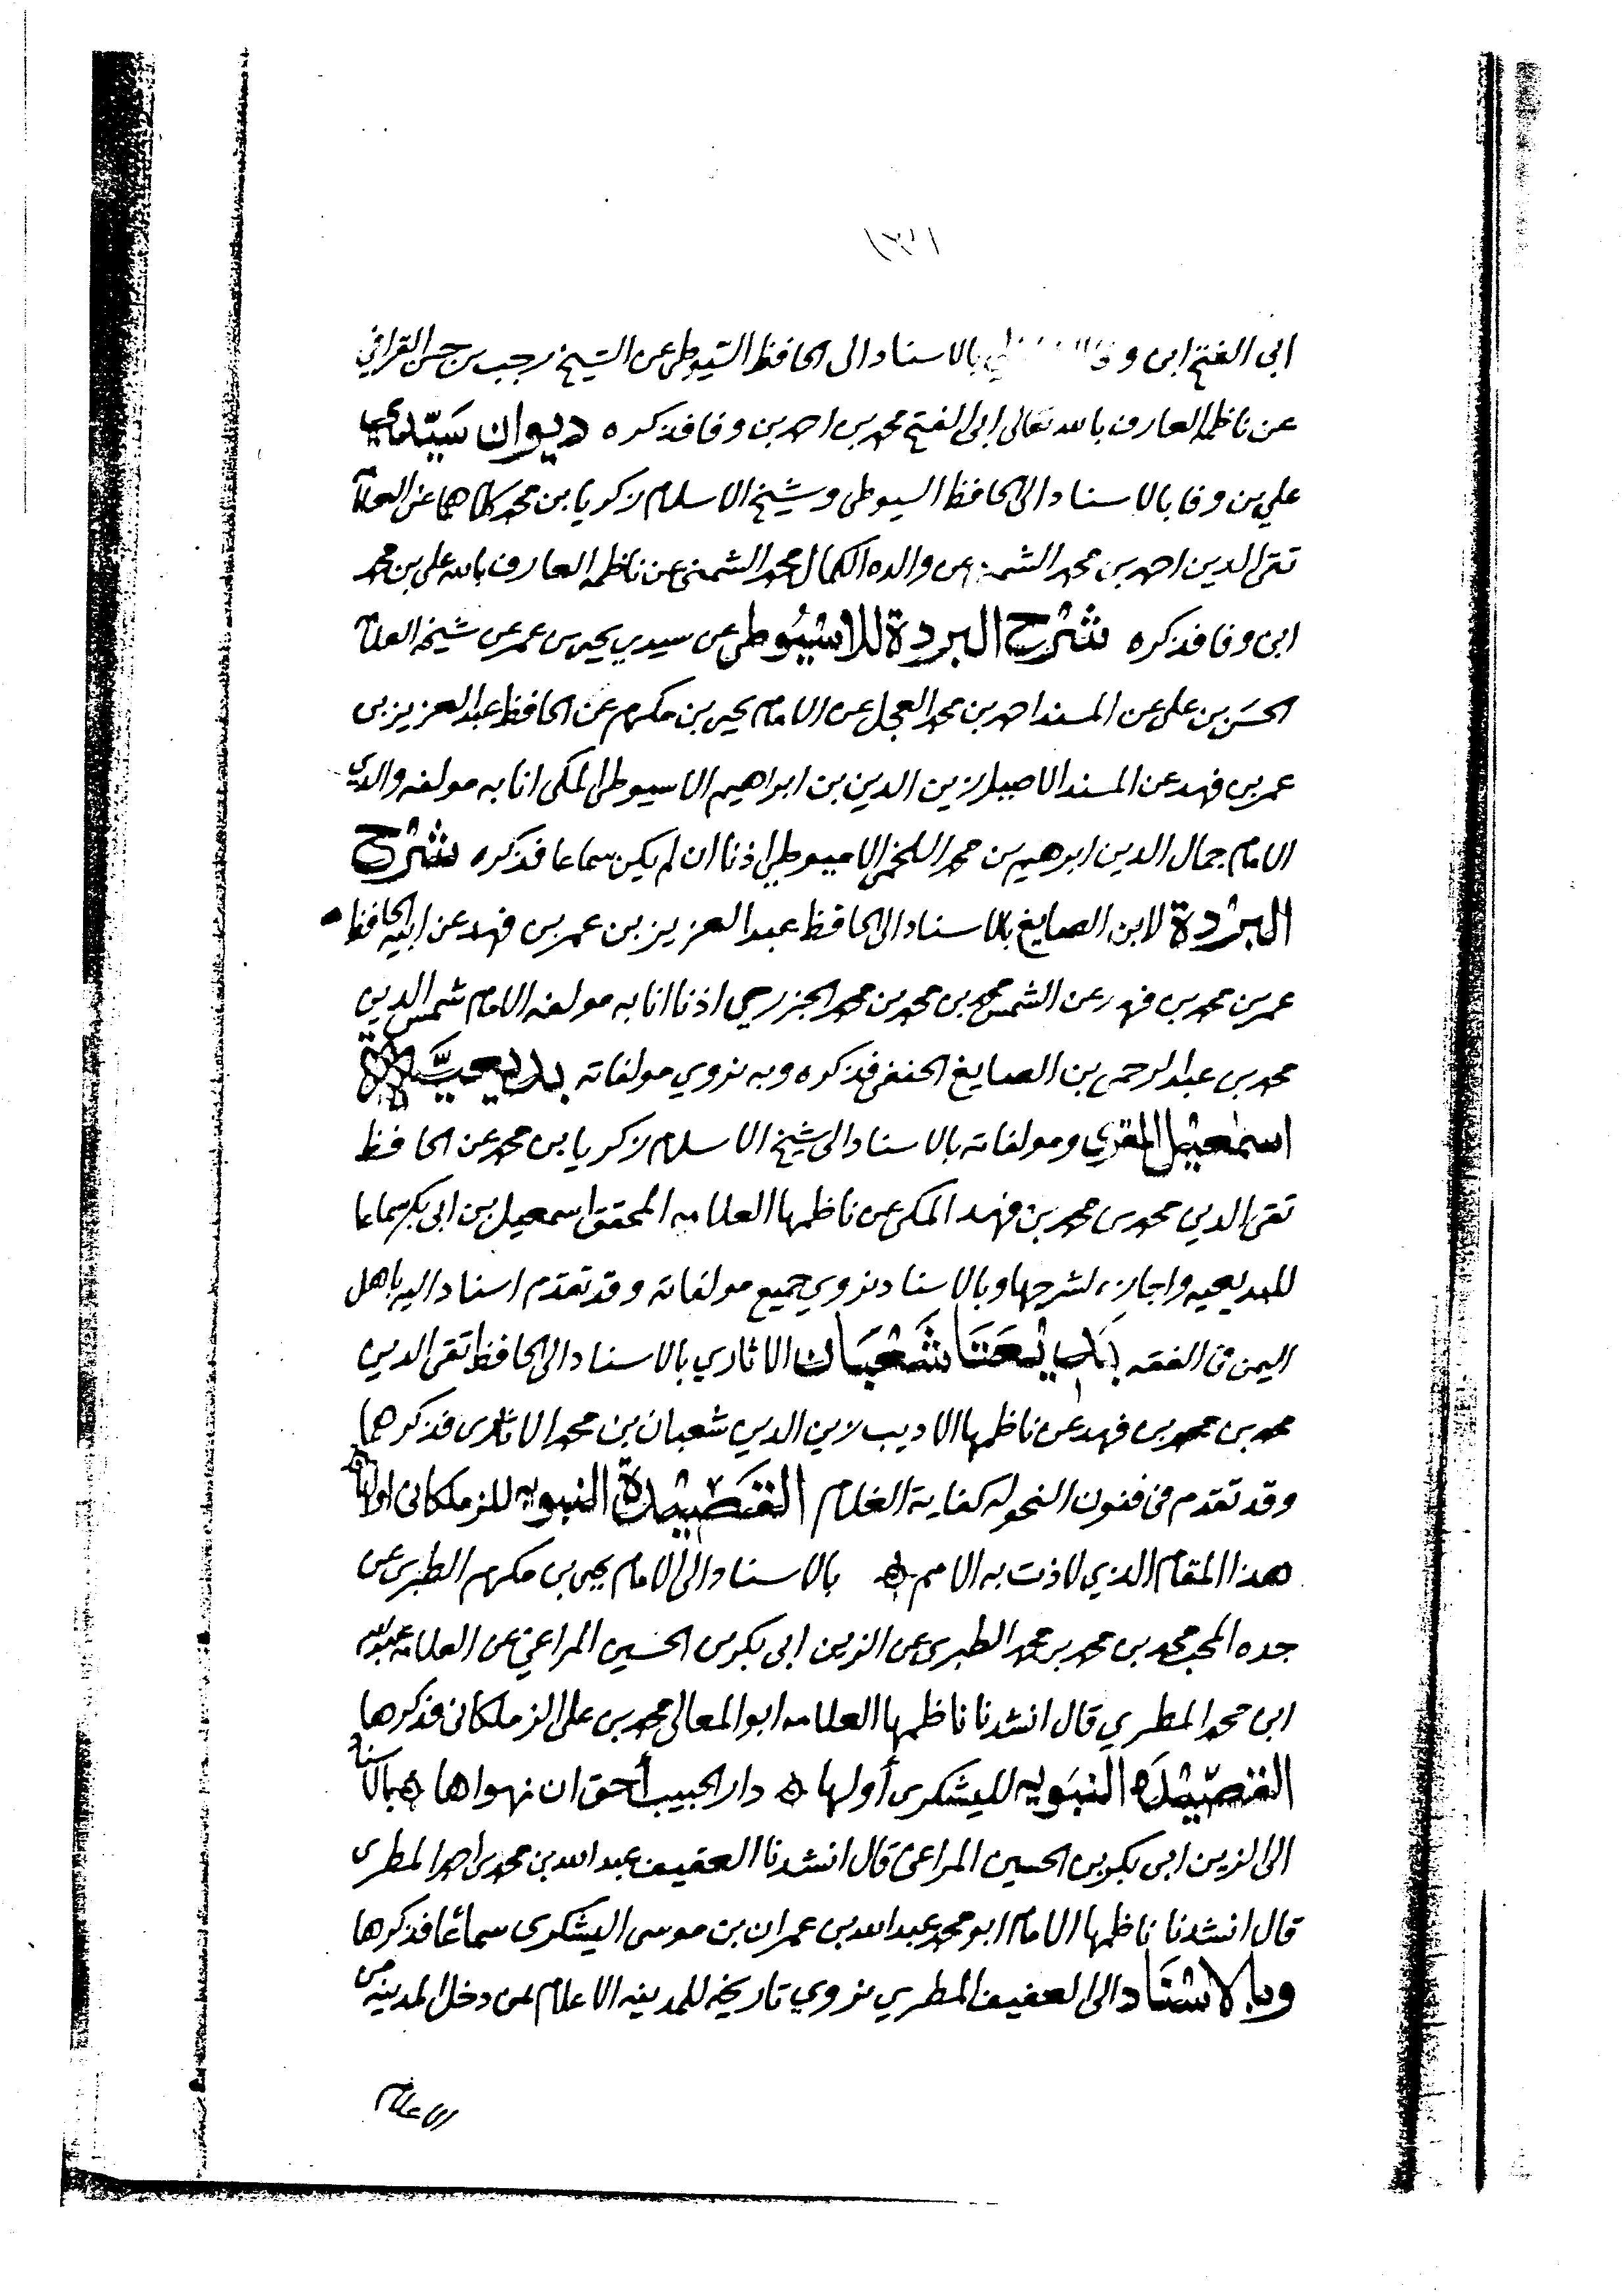 ابى الفتح ابن وفا بالاسناد الى الحافظ السيوطى عن الشيخ رجب بن حسن القرافي
عن ناظمه العارف بالله تعالى ابى الفتح محمد بن احمد بن وفا فذكره ديوان سَيّدي
علي بن وفا بالاسناد الى الحافظ السيوطى وشيخ الاسلام زكريا بن محمد كلاهما عن العلا
تقى الدين احمد بن محمد الشمنى عن والده الكمال محمد الشمنى عن ناظمه العارف بالله على بن محمد
ابن وفا فذكره شرح البردة للاسيُوطى عن سيدي يحيى بن عمر عن شيخه العلا
الحسَن بن على عن المسند احمد بن محمد العجل عن الامام يحيى بن مكرم عن الحافظ عبد العزيز بن
عمر بن فهد عن المسند الاصيل زين الدين بن ابراهيم الاسيوطى المكى انا به مولفه والدي
الامام جمال الدين ابرهيم بن محمد اللخمى الاميوطي اذنا ان لم يكن سماعا فذكره شرح
البردة لابن الصايغ بالاسناد الى الحافظ عبد العزيز بن عمر بن فهد عن ابيه الحافظ
عمر بن محمد بن فهد عن الشمس محمد بن محمد بن محمد الجزري اذنا انا به مولفه الامام شمس الدين
محمد بن عبد الرحمن بن الصايغ الحنفى فذكره وبه نروي مولفاته بديعيَّة
اسمعيل المقري ومولفاته بالاسناد الى شيخ الاسلام زكريا بن محمد عن الحافظ
تقى الدين محمد بن محمد بن فهد المكى عن ناظمها العلامه المحقق اسمعيل بن ابى بكر سماعا
للبديعيه واجازة لشرحها وبالاسناد نروي جميع مولفاته وقد تقدم اسناد اليه باهل
اليمن في الفقه بديعتا شَعْبَان الاثاري بالاسناد الى الحافظ تقى الدين
محمد بن محمد بن فهد عن ناظمها الاديب زين الدين شعبان بن محمد الاثارى فذكرهما
وقد تقدم في فنون النحو له كفاية الغلام القَصِيدة النبويه للزملكانى اولها
هذا المقام الذي لاذت به الامم ه بالاسناد الى الامام يحيى بن مكرم الطبرى عن
جده المحب محمد بن محمد بن محمد الطبرى عن الزين ابى بكر بن الحسين المراعي عن العلامه عبد الله
ابن محمد المطري قال انشدنا ناظمها العلامه ابو المعالى محمد بن على الزملكانى فذكرها
القصِيدَه النبَويه لليشكرى أولها ه دار الحبيب أحق ان تهواها ه بالاسناد
الى الزين ابى بكر بن الحسين المراعى قال انشدنا العفيف عبد الله بن محمد بن احمد المطرى
قال انشدنا ناظمها الامام ابو محمد عبد الله بن عمران بن موسى اليشكرى سماعًا فذكرها
وبالاسنَاد الى العفيف المطري نروي تاريخه للمدينه الاعلام لمن دخل المدينه من
الاعلام